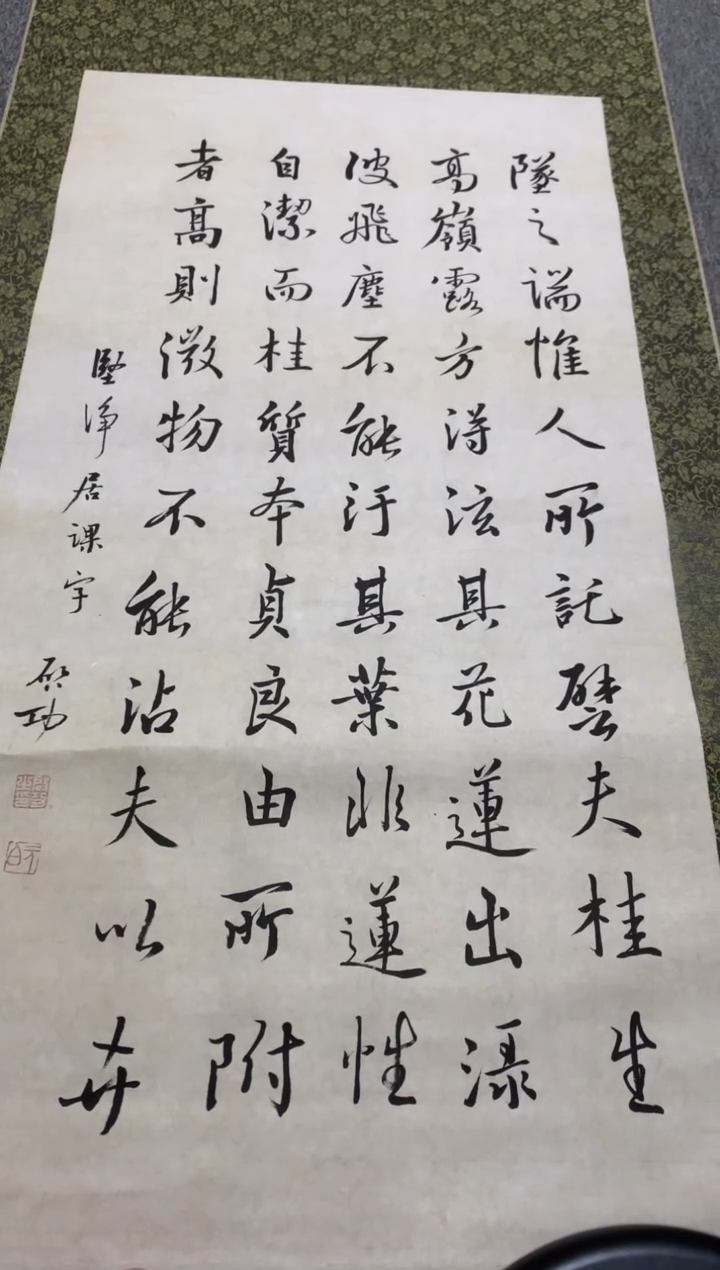 隧之端惟人所託譬夫桂生
高嶺露方得泫其花蓮出渌
彼飛塵不能汙其葉非蓮性
自潔而桂質本貞良由所附
者高則微物不能沾夫以卉
堅淨居課字
啟功